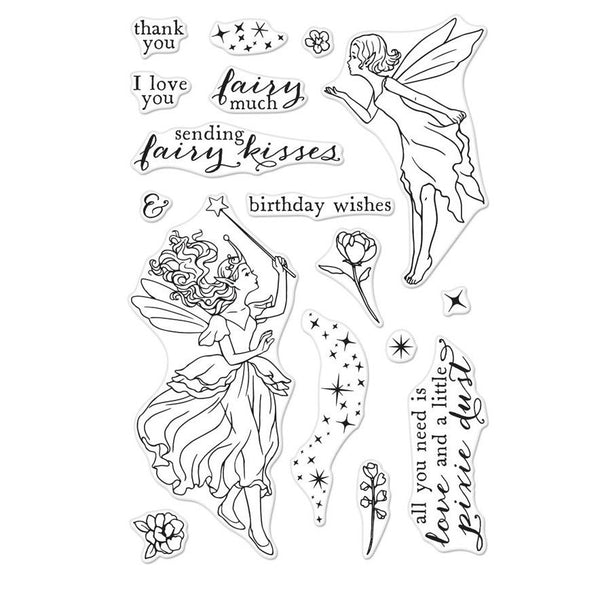 thank
you
I love
you
fairy
much
sending
fairy kisses
&
birthday wishes
all you need is
love and a little
pixie dust